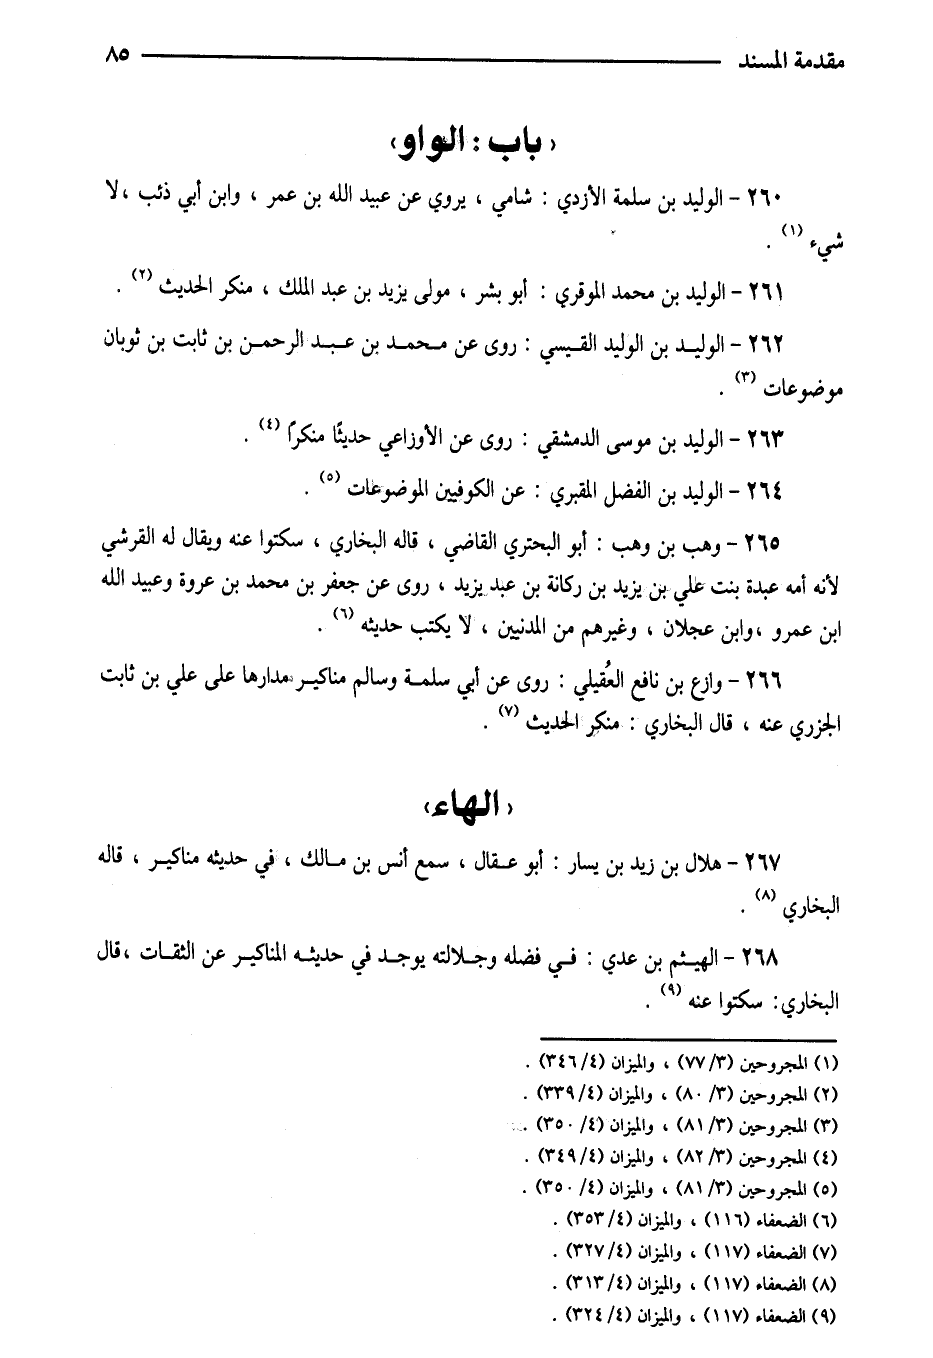 مقدمة المسند ٨٥
﴿ باب : الواو ﴾
٢٦٠ - الوليد بن سلمة الأزدي : شامي ، يروي عن عبيد الله بن عمر ، وابن أبي ذئب ،لا
شيء (١) .
٢٦١ - الوليد بن محمد الموقري : أبو بشر ، مولى يزيد بن عبد الملك ، منكر الحديث (٢) .
٢٦٢ - الوليد بن الوليد القيسي : روى عن محمد بن عبد الرحمن بن ثابت بن ثوبان
موضوعات (٣) .
٢٦٣ - الوليد بن موسى الدمشقي : روى عن الأوزاعي حديثًا منكرًا (٤) .
٢٦٤ - الوليد بن الفضل المقبري : عن الكوفيين الموضوعات (٥) .
٢٦٥ - وهب بن وهب : أبو البحتري القاضي ، قاله البخاري ، سكتوا عنه ويقال له القرشي
لأنه أمه عبدة بنت علي بن يزيد بن ركانة بن عبد يزيد ، روى عن جعفر بن محمد بن عروة وعبيد الله
ابن عمرو ،وابن عجلان ، وغيرهم من المدنيين ، لا يكتب حديثه (٦) .
٢٦٦ - وازع بن نافع العُقيلي : روى عن أبي سلمة وسالم مناكير مدارها على علي بن ثابت
الجزري عنه ، قال البخاري : منكر الحديث (٧) .
﴿ الهاء ﴾
٢٦٧ - هلال بن زيد بن يسار : أبو عقال ، سمع أنس بن مالك ، في حديثه مناكير ، قاله
البخاري (٨) .
٢٦٨ - الهيثم بن عدي : في فضله وجلالته يوجد في حديثه المناكير عن الثقات ،قال
البخاري: سكتوا عنه (٩) .
(١) المجروحين (٣/ ٧٧) ، والميزان (٤/ ٣٤٦) .
(٢) المجروحين (٣/ ٨٠) ، والميزان (٤/ ٣٣٩) .
(٣) المجروحين (٣/ ٨١) ، والميزان (٤/ ٣٥٠) .
(٤) المجروحين (٣/ ٨٢) ، والميزان (٤/ ٣٤٩) .
(٥) المجروحين (٣/ ٨١) ، والميزان (٤/ ٣٥٠) .
(٦) الضعفاء (١١٦) ، والميزان (٤/ ٣٥٣) .
(٧) الضعفاء (١١٧) ، والميزان (٤/ ٣٢٧) .
(٨) الضعفاء (١١٧) ، والميزان (٤/ ٣١٣) .
(٩) الضعفاء (١١٧) ، والميزان (٤/ ٣٢٤) .